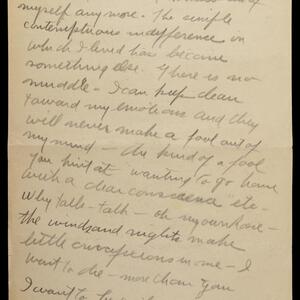 myself anymore. The simple
contemptuous indifference in
which I lived has become
something else. There is no
muddle – I can keep clean
toward my emotions and they
will never make a fool out of
my mind – the kind of a fool
You hint at wanting to go home
with a clear conscience etc.
Why talk – talk – oh my own
the winds and nights make
little crucifixions in me – I
want to die – more than you
I want to